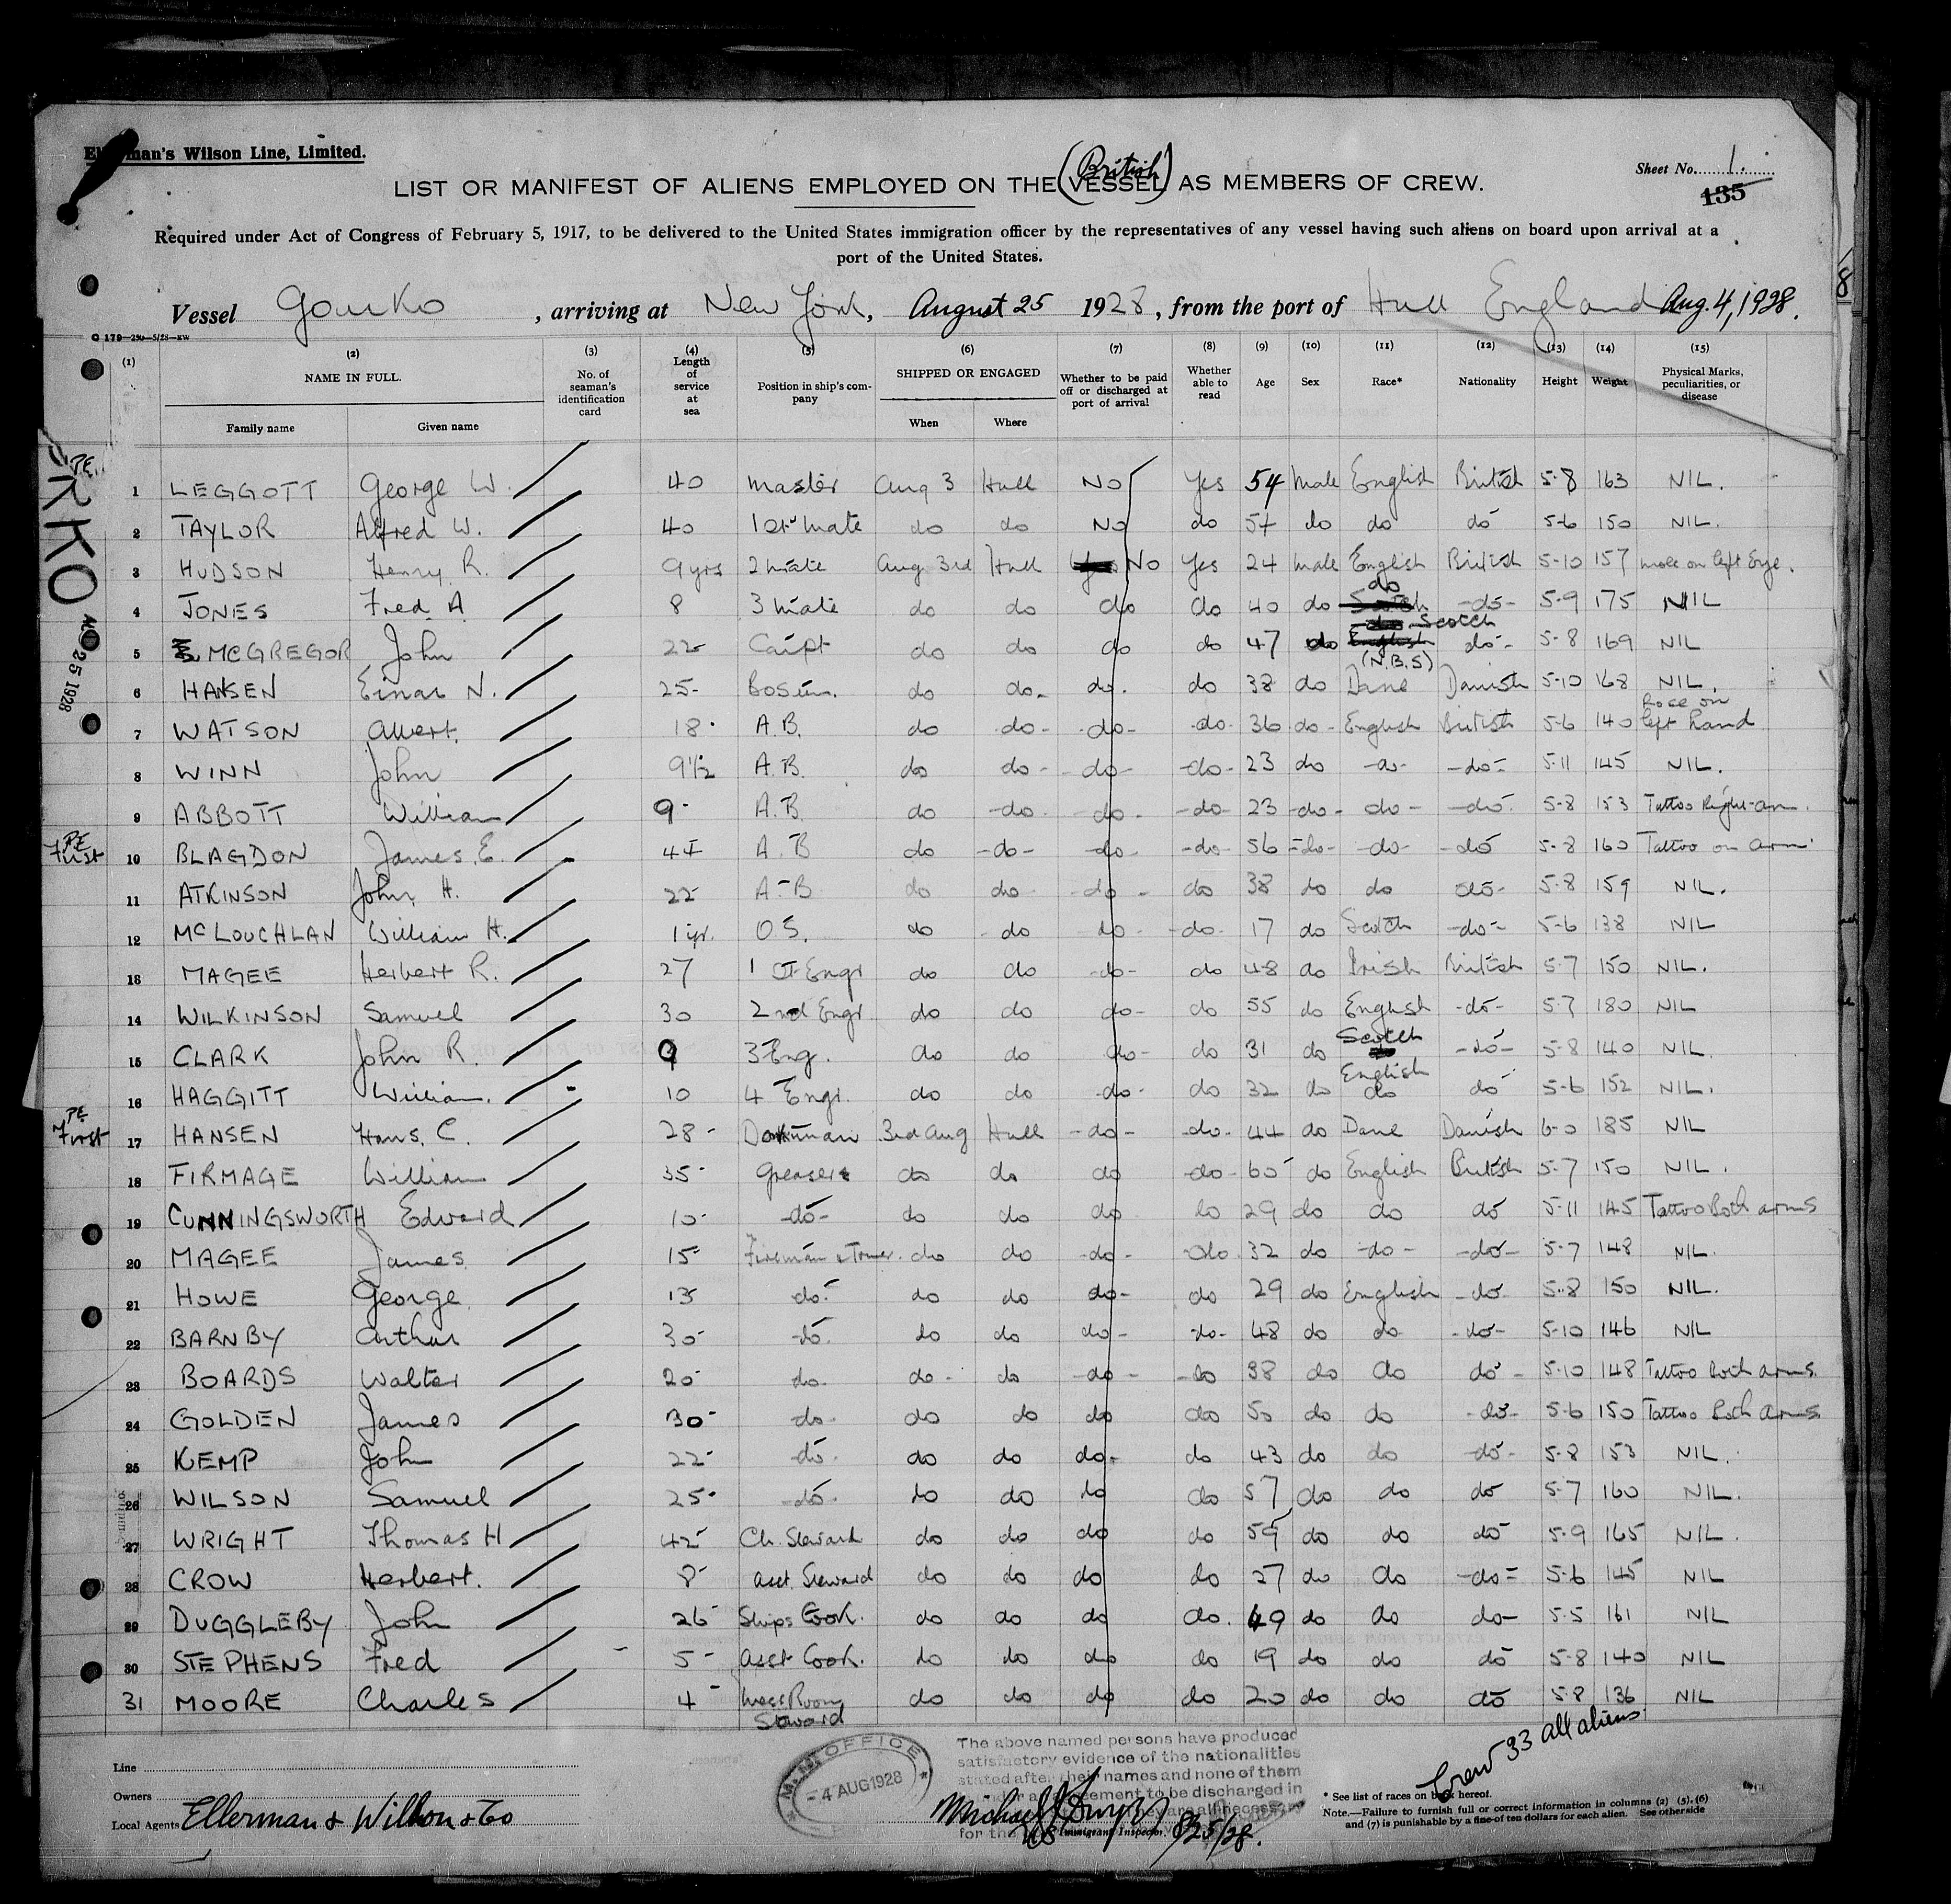 Ellerman's Wilson Line, Limited.
Sheet No. 1.
135
(British)
LIST OR MANIFEST OF ALIENS EMPLOYED ON THE VESSEL AS MEMBERS OF CREW.
Required under Act of Congress of February 5, 1917, to be delivered to the United States immigration officer by the representatives of any vessel having such aliens on board upon arrival at a
port of the United States.
Vessel Gourko, arriving at New York, August 25 1928, from the port of Hull England Aug. 4, 1928.
(1) (2) (3) (4) (5) (6) (7) (8) (9) (10) (11) (12) (13) (14) (15)
NAME IN FULL. No. of seaman's identification card Length of service at sea Position in ship's company SHIPPED OR ENGAGED Whether to be paid off or discharged at port of arrival Whether able to read Age Sex Race* Nationality Height Weight Physical Marks, peculiarities, or disease
Family name Given name When Where
1 LEGGOTT George W. 40 Master Aug 3 Hull No Yes 54 Male English British 5-8 163 NIL.
2 TAYLOR Alfred W. 40 1st mate do do No do 54 do do do 5-6 150 NIL.
3 HUDSON Henry R. 9 yrs 2 mate Aug 3rd Hull No Yes 24 male English British 5-10 157 mole on left Eye.
4 JONES Fred A 8 3 mate do do do do 40 do do -do- 5-9 175 NIL
5 MCGREGOR John 22 Carpt do do do do 47 do Scotch (N.B.S) do 5-8 169 NIL
6 HANSEN Einar N. 25 Bosun. do do do. do 38 do Dane Danish 5-10 168 NIL.
7 WATSON Albert. 18 A.B. do do -do- -do- 36 do English British 5-6 140 Rose on left hand
8 WINN John 9½ A.B. do do -do- -do- 23 do -do- -do- 5-11 145 NIL.
9 ABBOTT William 9 A.B. do -do- -do- -do- 23 -do- do -do- 5-8 153 Tattoo Right arm.
PE First
10 BLAGDON James E. 44 A.B do -do- -do- -do- 56 -do- -do- -do- 5-8 160 Tattoo on arm
11 ATKINSON John H. 22 A-B do do -do- do 38 do do do- 5-8 159 NIL.
12 McLOUCHLAN William H. 1 yr. O.S. do do -do- -do- 17 do Scotch -do- 5-6 138 NIL
13 MAGEE Herbert R. 27 1st Engr do do -do- do 48 do Irish British 5-7 150 NIL.
14 WILKINSON Samuel 30 2nd Engr do do do- do 55 do English -do- 5-7 180 NIL
15 CLARK John R. 9 3 Eng. do do do- do 31 do Scotch -do- 5-8 140 NIL.
16 HAGGITT William. 10 4 Engr. do do -do- do 32 do English do 5-6 152 NIL.
PE First
17 HANSEN Hans. C. 28 Donkeyman 3rd Aug Hull -do- -do- 44 do Dane Danish 6-0 185 NIL
18 FIRMAGE William 35 Greaser do do do -do- 60 do English British 5-7 150 NIL.
19 CUNNINGSWORTH Edward 10 -do- do do do do 29 do do do 5-11 145 Tattoo Both arms
20 MAGEE James 15 Fireman & Trimer. do do -do- -do- 32 do -do- -do- 5-7 148 NIL.
21 HOWE George 13 do. do do do- do 29 do English -do- 5-8 150 NIL.
22 BARNBY Arthur 30 -do- do do do- -do- 48 do do -do- 5-10 146 NIL
23 BOARDS Walter 20 do. do do -do- -do 38 do do do - 5-10 148 Tattoo both arms
24 GOLDEN James 30 -do- do do do do 50 do do -do- 5-6 150 Tattoo Both Arms
25 KEMP John 22 -do- do do do- do 43 do do -do- 5-8 153 NIL.
26 WILSON Samuel 25 -do- do do do do 57 do do do 5-7 160 NIL.
27 WRIGHT Thomas H 42 Ch. Steward do do do do 59 do do do 5-9 165 NIL.
28 CROW Herbert. 8 Asst. Steward do do do do 27 do do -do- 5-6 145 NIL
29 DUGGLEBY John 26 Ships Cook. do do do do. 49 do do do- 5-5 161 NIL
30 STEPHENS Fred 5 Asst Cook. do do do do 19 do do do 5-8 140 NIL
31 MOORE Charles 4 Mess Room Steward do do do do 20 do do do 5-8 136 NIL
AUG 25 1928
Crew 33 all aliens
Line
Owners
Local Agents Ellerman & Wilson & Co
OFFICE
-4 AUG 1928
The above named persons have produced
satisfactory evidence of the nationalities
stated after their names and none of them
to be discharged in
Immigrant Inspector. 8/25/28.
* See list of races on back hereof.
Note.—Failure to furnish full or correct information in columns (2) (5), (6)
and (7) is punishable by a fine of ten dollars for each alien. See other side